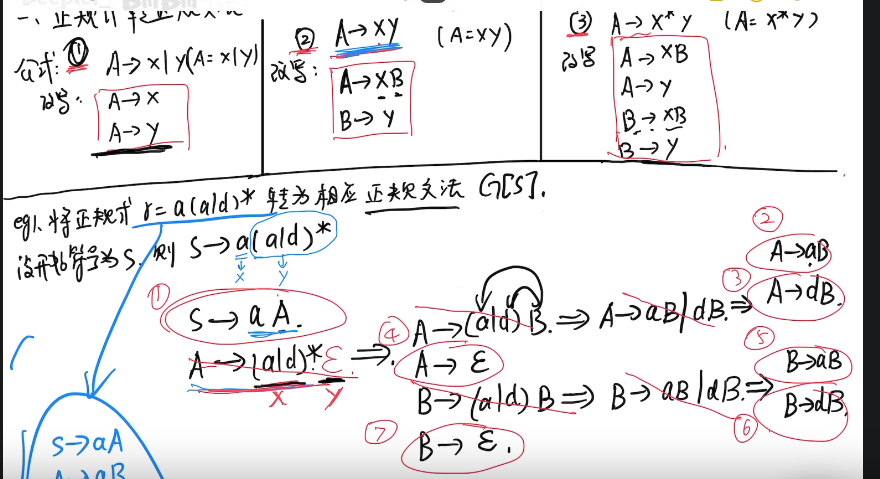 一、正规式转正规文法
公式: ① A→x|y(A=x|y)
改写: A→x
A→y
② A→xy (A=xy)
改写: A→xB
B→y
③ A→x*y (A=x*y)
改写 A→xB
A→y
B→xB
B→y
eg1.将正规式 r=a(a|d)* 转为相应 正规文法 G[S].
设开始符号为S, 则 S→a(a|d)*
x y
① S→aA.
A→(a|d)*ε ⇒
x y
A→(a|d)B. ⇒ A→aB|dB. ⇒
② A→aB
③ A→dB.
④ A→ε
B→(a|d)B ⇒ B→aB|dB. ⇒
⑤ B→aB
⑥ B→dB.
⑦ B→ε.
S→aA
A→aB